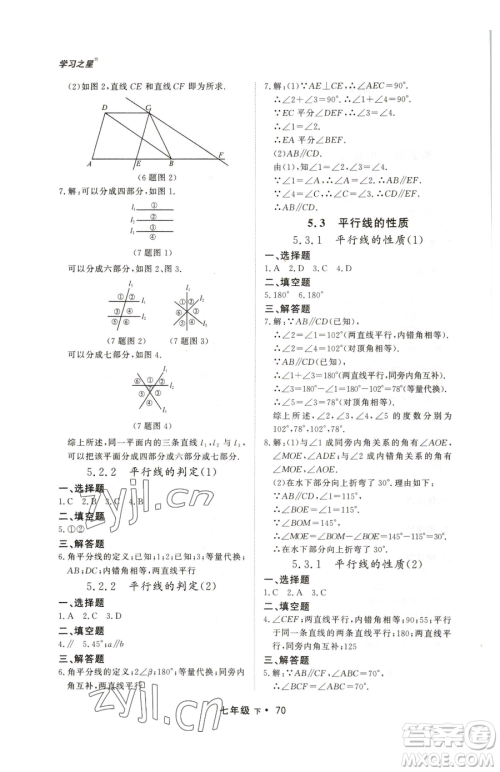 学习之星
(2)如图2,直线CE和直线CF即为所求.
D G
A E B F
(6题图2)
7.解:可以分成四部分,如图1.
① l₁
② l₂
③ l₃
④
(7题图1)
可以分成六部分,如图2,图3.
(7题图2) (7题图3)
可以分成七部分,如图4.
(7题图4)
综上所述,平面内的三条直线l₁,l₂,l₃可以把平面分成四或六或七部分.
5.2.2 平行线的判定(1)
一、选择题
1.C 2.C 3.A 4.B
二、填空题
5.①②
三、解答题
6.角平分线的定义;已知;∠2;∠3;等量代换;AB;DC;内错角相等,两直线平行.
5.2.2 平行线的判定(2)
一、选择题
1.A 2.C 3.D
二、填空题
4.∥ 5.45° a∥b
三、解答题
6.角平分线的定义;2∠β;180°;等量代换;同旁内角互补,两直线平行
7.解:(1)∵AE⊥CE,∴∠AEC=90°.
∴∠2+∠3=90°且∠1+∠4=90°.
∵EC平分∠DEF,∴∠3=∠4.
∴∠1=∠2.
∴EA平分∠BEF.
(2)AB∥CD.
由(1),知∠1=∠2,∠3=∠4,
∴∠DEF=2∠4,∠BEF=2∠1.
∵∠1=∠A,∠4=∠C,
∴∠BEF=2∠A,∠DEF=2∠C.
∴AB∥CD.
5.3 平行线的性质
5.3.1 平行线的性质(1)
一、选择题
1.A 2.D 3.C 4.A
二、填空题
5.180° 6.180°
三、解答题
7.解:∵AB∥CD(已知),
∴∠2=∠1=102°(两直线平行,内错角相等),
∠4=∠1=102°(对顶角相等).
∵AB∥CD(已知),
∴∠1+∠3=180°(两直线平行,同旁内角互补).
∴∠3=180°-∠1=180°-102°=78°.
∴∠5=∠3=78°(对顶角相等).
综上所述,∠2,∠3,∠4,∠5的度数分别为102°,78°,102°,78°.
8.解:(1)与∠1成同旁内角关系的角有∠AOE,∠MOE,∠ADE,与∠2成内错角关系的角有∠MOE,∠AOE.
(2)∵在水下部分向上折弯了,且∠1=115°,
∴∠BOM=∠1=115°.
∵在水面部分向下折弯了,且∠2=145°,
∴∠AOE=∠2=145°.
5.3.1 平行线的性质(2)
一、选择题
1.A 2.D 3.C 4.C
二、填空题
5.∠CEF;两直线平行,内错角相等;90;55;平行于同一条直线的两直线平行;∠AEF;180;两直线平行,同旁内角互补;125
七年级 下 · 70
zyjl.cn